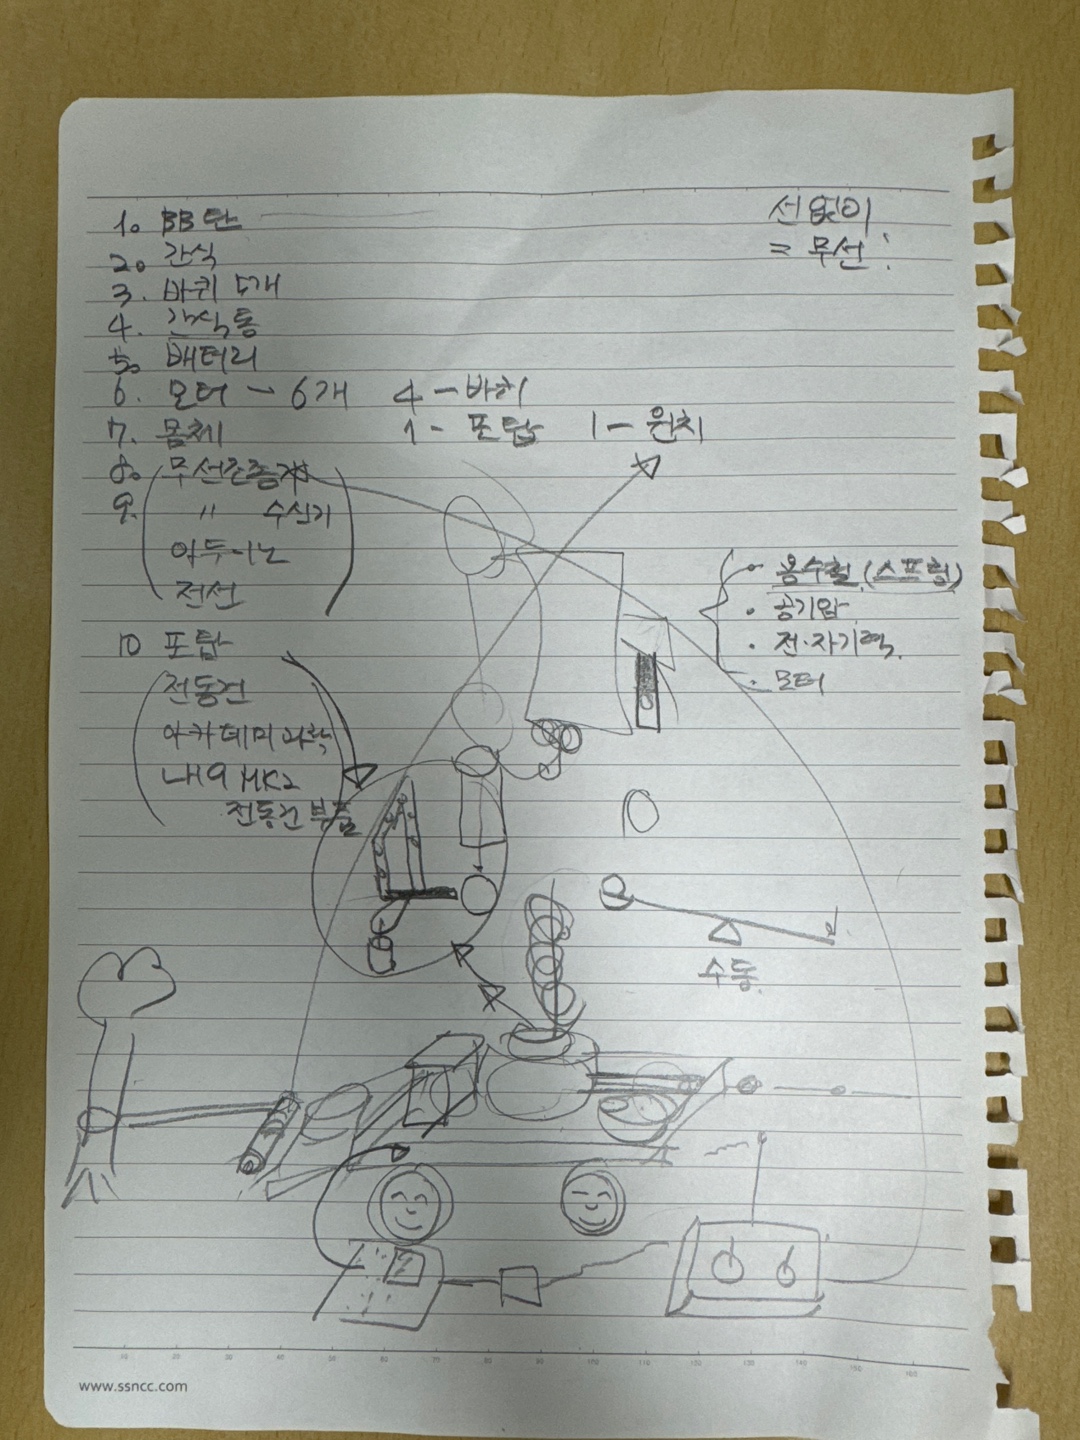 선없이
= 무선
1. BB탄
2. 간식
3. 바퀴 5개
4. 간식통
5. 배터리
6. 모터 - 6개 4 - 바퀴
7. 몸체 1 - 포탑 1 - 윈치
8. 무선조종기
9. 〃 수신기
아두이노
전선
용수철 (스프링)
· 공기압
· 전·자기력
· 모터
10 포탑
전동건
아카데미과학
MK2
전동건 부품
수동
www.ssncc.com
10 20 30 40 50 60 70 80 90 100 110 120 130 140 150 160